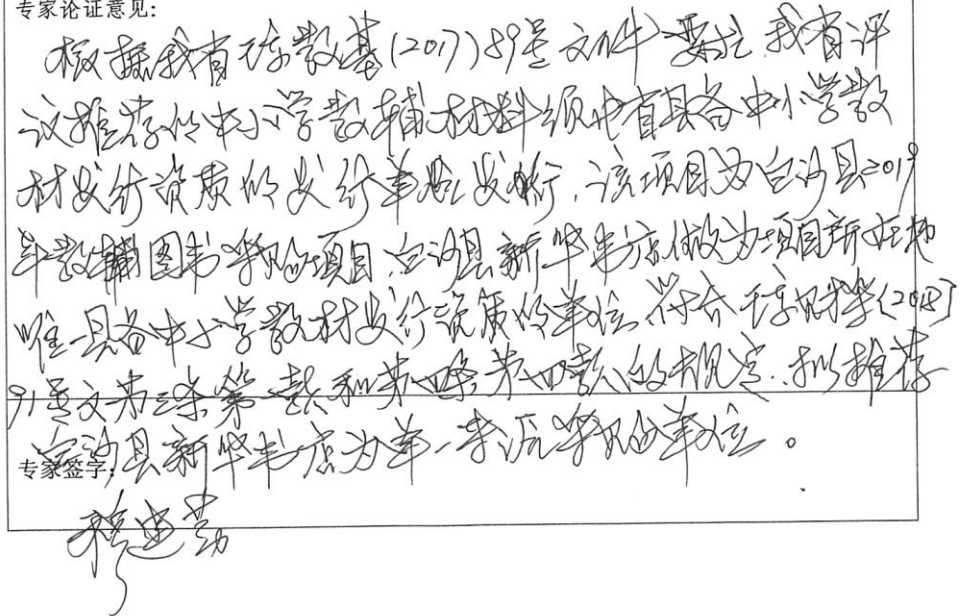 专家论证意见:
根据我省琼教基(2017)89号文件要求,我省评
议推荐的中小学教辅材料须由省具备中小学教
材发行资质的发行单位发行,该项目为白沙县2019
年教辅图书采购项目,白沙县新华书店做为项目所在地
唯一具备中小学教材发行资质的单位,符合琼财采(2018)
91号文第三条第一款和第四条第四款的规定,拟推荐
白沙县新华书店为单一来源采购的单位。
专家签字: